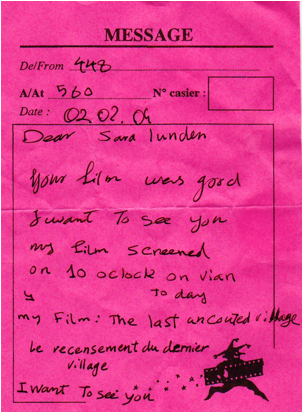 MESSAGE
De/From 448
A/At 560 N° casier :
Date : 02 02. 04
Dear Sara lunden
Your film was good
I want To see you
my film screened
on 10 oclock on vian
y To day
my Film: The last uncouted village
Le recensement du dernier
village
I want To see you